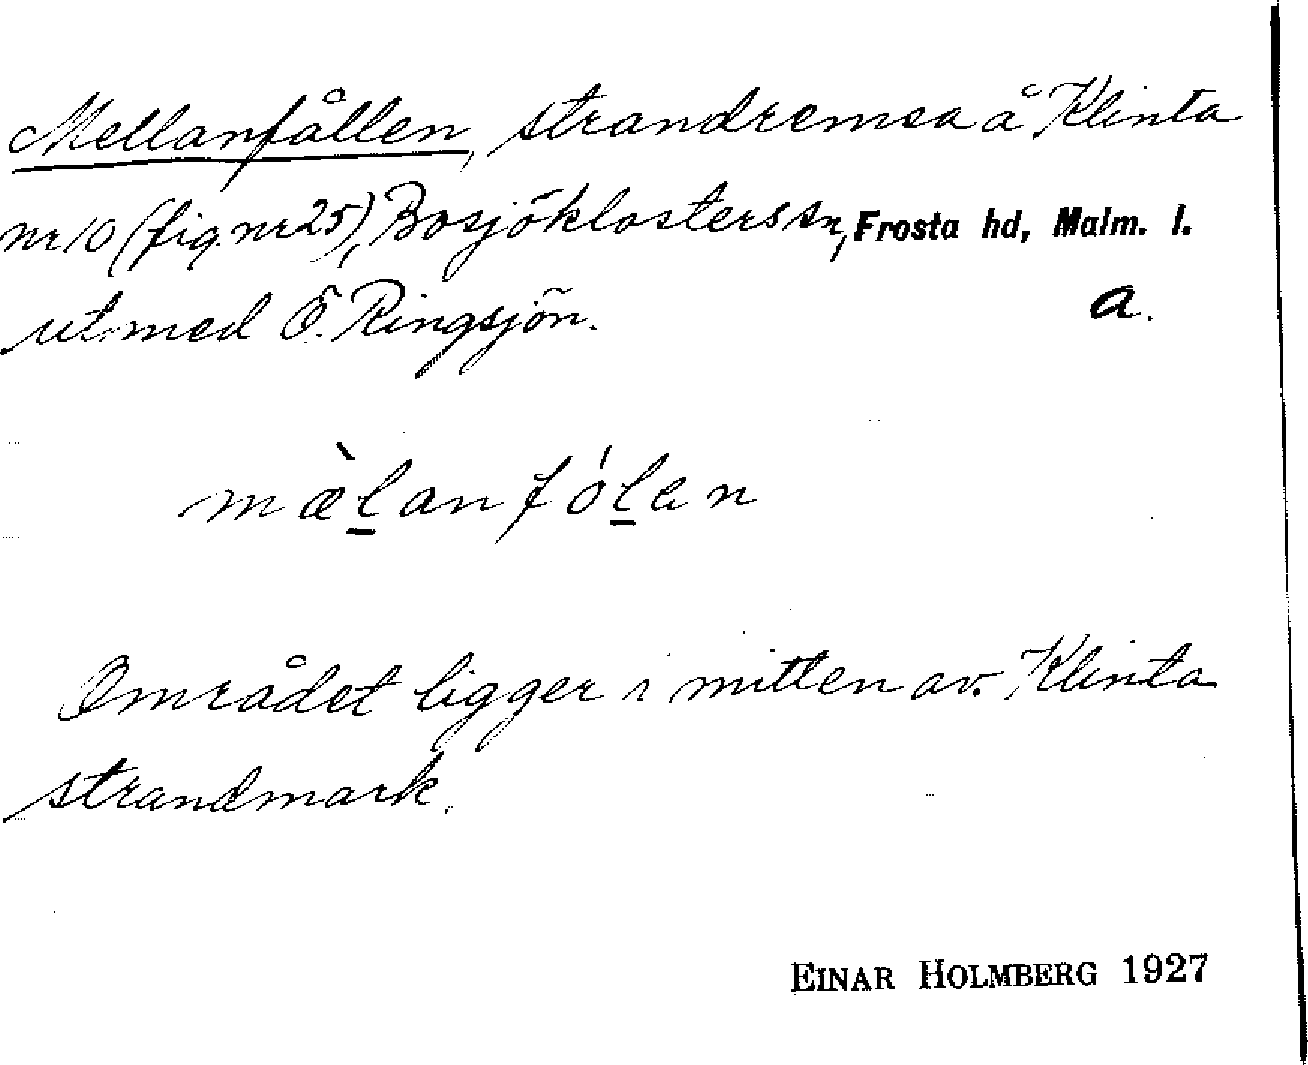 Mellanfållen, strandremsa å Klinta
nr 10 (fig. nr 25), Bosjöklosters sn, Frosta hd, Malm. l.
utmed Ö. Ringsjön. a.
mæ̀l̲anfól̲en
Området ligger i mitten av Klinta
strandmark.
EINAR HOLMBERG 1927